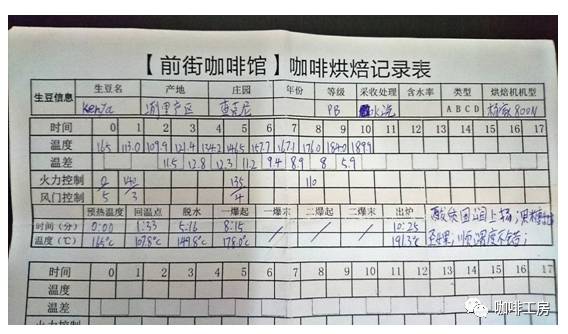 【前街咖啡馆】咖啡烘焙记录表
生豆信息 生豆名 产地 庄园 年份 等级 采收处理 含水率 类型 烘焙机机型
Kenya 产区 PB 水洗 A B C D 800N
时间 0 1 2 3 4 5 6 7 8 9 10 11 12 13 14 15 16 17
温度 165 113.0 109.9 121.4 134.2 146.5 157.7 167.1 176.0 184.0 189.9
温差 11.5 12.8 12.3 11.2 9.4 8.9 8 5.9
火力控制 0 140 135 110
风门控制 5 3 4
预热温度 回温点 脱水 一爆起 一爆末 二爆起 二爆末 出炉
时间(分) 0:00 1:33 5:16 8:15 10:25
温度(℃) 165℃ 107.8℃ 149.8℃ 178.0℃ 191.3℃
时间 0 1 2 3 4 5 6 7 8 9 10 11 12 13 14 15 16 17
温度
温差
火力控制
咖啡工房